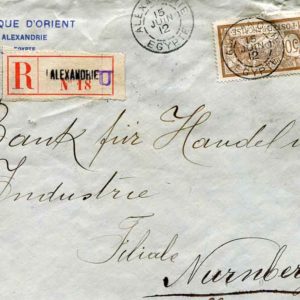 QUE D'ORIENT
ALEXANDRIE
EGYPTE
R ALEXANDRIE
N 18
ALEXANDRIE
15
JUIN
12
EGYPTE
JUIN
12
EGYPTE
50
Bank für Handel u
Industrie
Filiale
Nürnberg